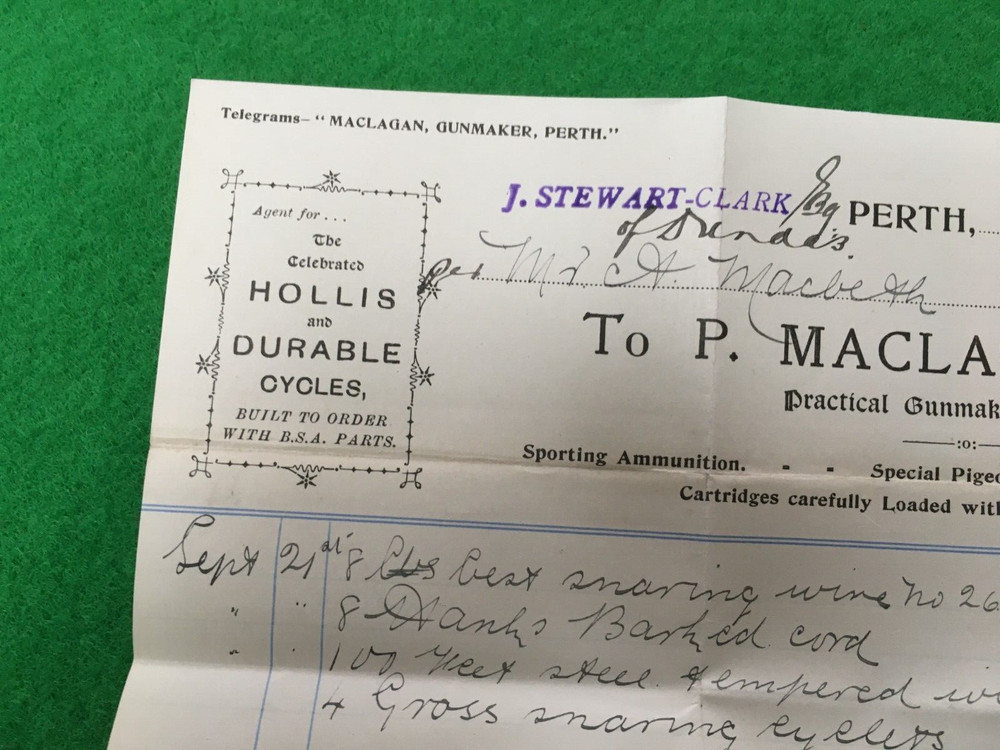 Telegrams— “ MACLAGAN, GUNMAKER, PERTH.”
Agent for . . .
The
Celebrated
HOLLIS
and
DURABLE
CYCLES,
BUILT TO ORDER
WITH B.S.A. PARTS.
J. STEWART-CLARK Esq
of Dundas
PERTH,
per Mr. A. Macbeth
To P. MACLA
Practical Gunmak
:o:
Sporting Ammunition. - - Special Pigeo
Cartridges carefully Loaded with
Sept 21st 8 lbs best snaring wire No 26
" " 8 Hanks Barked cord
" " 100 Feet steel tempered wi
4 Gross snaring eyelets